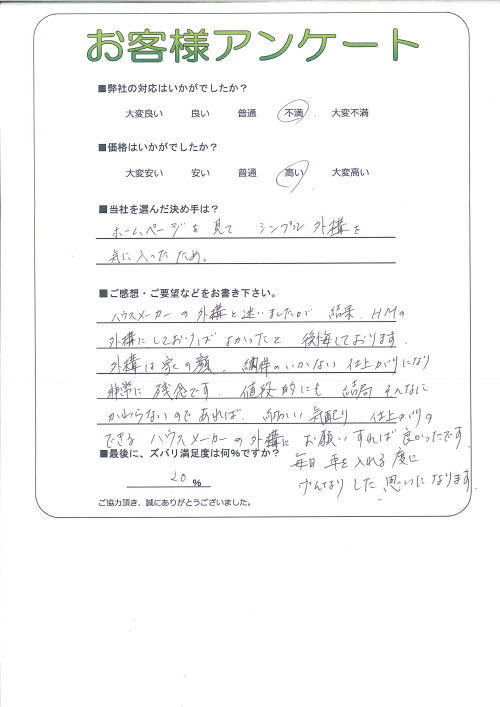 お客様アンケート
■弊社の対応はいかがでしたか？
大変良い 良い 普通 不満 大変不満
■価格はいかがでしたか？
大変安い 安い 普通 高い 大変高い
■当社を選んだ決め手は？
ホームページを見て シンプル外構を
気に入ったため。
■ご感想・ご要望などをお書き下さい。
ハウスメーカーの外構と迷いましたが 結果、HMの
外構にしておけばよかったと 後悔しております。
外構は家の顔、納得のいかない仕上がりになり
非常に残念です。値段的にも 結局そんなに
かわらないのであれば、細かい気配り 仕上がりの
できる ハウスメーカーの外構に お願いすれば良かったです。
毎日 車を入れる度に
げんなりした 思いになります。
■最後に、ズバリ満足度は何%ですか？
20 %
ご協力頂き、誠にありがとうございました。